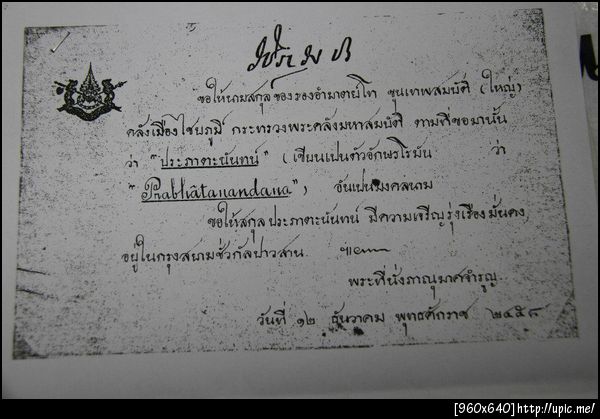 ขอให้นามสกุลของรองอำมาตย์โท ขุนเทพสมบัติ (ใหญ่)
คลังเมืองไชยภูมิ์ กระทรวงพระคลังมหาสมบัติ ตามที่ขอมานั้น
ว่า "ประภาตะนันทน์" (เขียนเป็นตัวอักษรโรมัน ว่า
"Prabhâtanandana") อันเปนมงคลนาม
ขอให้สกุลประภาตะนันทน์ มีความเจริญรุ่งเรืองมั่นคง
อยู่ในกรุงสยามชั่วกัลปาวสาน.
พระที่นั่งภาณุมาศจำรูญ.
วันที่ ๑๒ ธันวาคม พุทธศักราช ๒๔๕๘
[960x640]http://upic.me/